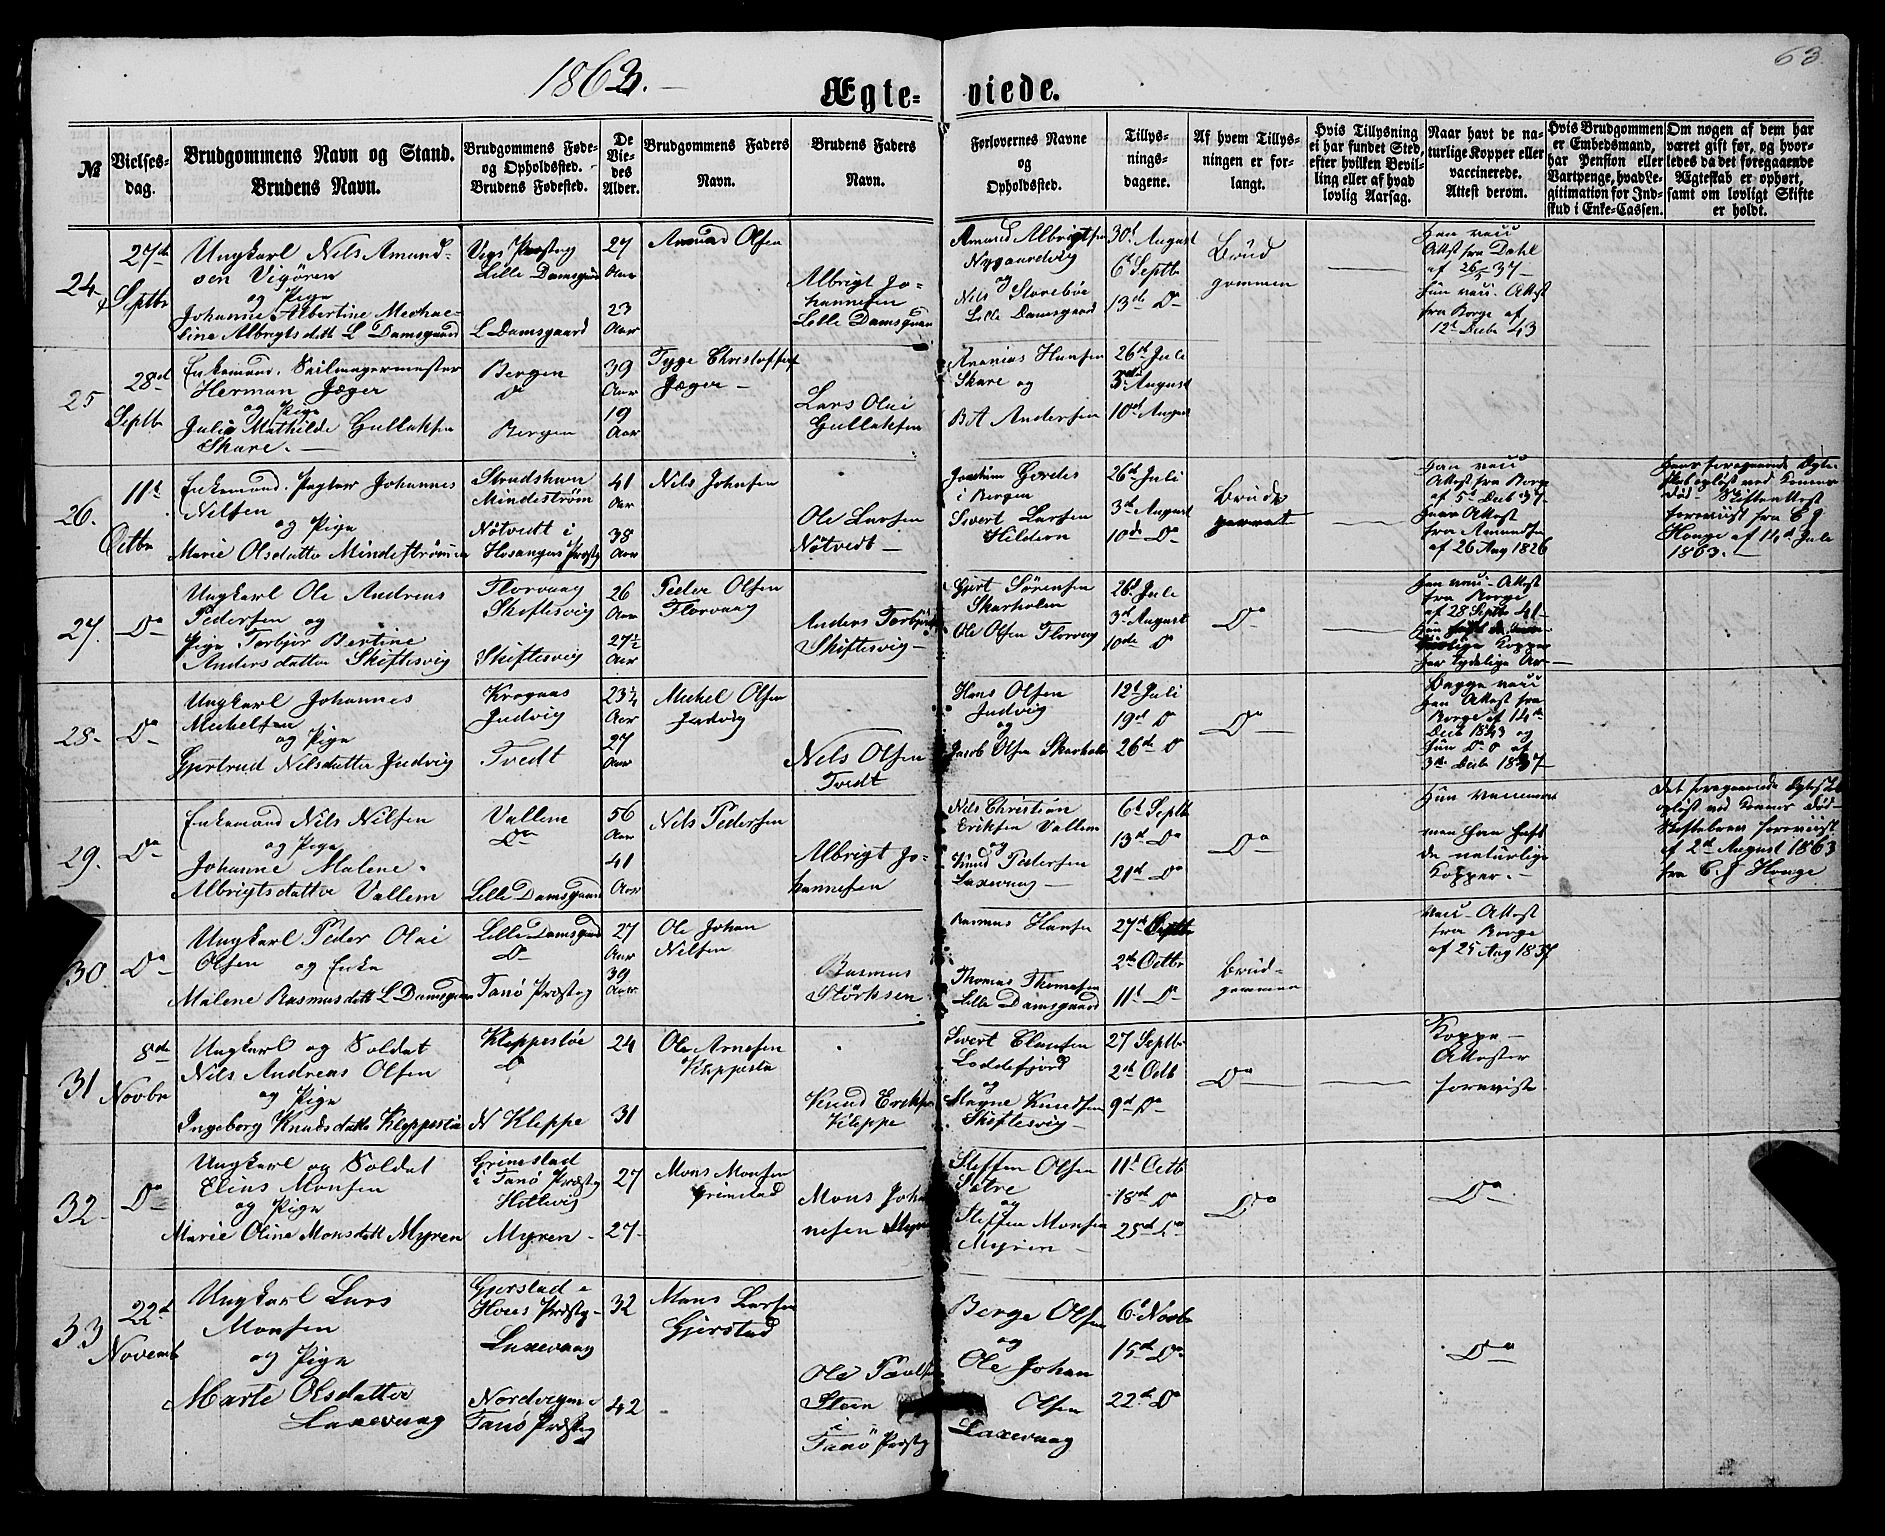 63.
1863.
Ægte-
viede.
№
Vielses-
dag.
Brudgommens Navn og Stand.
Brudens Navn.
Brudgommens Føde-
og Opholdssted.
Brudens Fødested.
De
Vie-
des
Alder.
Brudgommens Faders
Navn.
Brudens Faders
Navn.
Forlovernes Navne
og
Opholdssted.
Tillys-
nings-
dagene.
Af hvem Tillys-
ningen er for-
langt.
Hvis Tillysning
ei har fundet Sted,
efter hvilken Bevil-
ling eller af hvad
lovlig Aarsag.
Naar havt de na-
turlige Kopper eller
vaccinerede.
Attest derom.
Hvis Brudgommen
er Embedsmand,
har Pension eller
Vartpenge, hvad Le-
gitimation for Ind-
skud i Enke-Cassen.
Om nogen af dem har
været gift før, og hvor-
ledes da det foregaaende
Ægteskab er ophørt,
samt om lovligt Skifte
er holdt.
24
27de
Septbr
Ungkarl Nils Amund-
sen Vigøren
og Pige
Johanne Albertine Michae-
line Albrigtsdatt L Damsgaard
Lille Damsgaard
L Damsgaard
27
Aar
23
Aar
Amund Olsen
Albrigt Jo-
hannesen
Lille Damsgaard
Amund Albrigtsen
Nygaardsvig
og
Nils Storebøe
Lille Damsgaard
30t August
6t Septb
13de Do
Brud
gommen
Han vacc
Attest fra Dahl
af 26/5 37
Hun vacc. Attest
fra Borge af
12t Decbr 43
25
28d
Septbr
Enkemand. Seilmagermester
Herman Jæger
og Pige
Julie Mathilde Gullaksen
Skare.
Bergen
Do
Bergen
39
Aar
19
Aar
Tyge Christoffer
Jæger
Lars Olai
Gullaksen
Ananias Hansen
Skare og
B A Andersen
26d Juli
3d August
10d August
26.
11t
Octbr
Enkemand. Pagter Johannes
Nilsen
og Pige
Marie Olsdatter Mindestrømmen
Strudshavn
Mindestrøm
Nötvedt i
Hosanger Præstg
41
Aar
38
Aar
Nils Johnsen
Ole Larsen
Nötvedt
Joachim Gerdes
i Bergen
Sivert Larsen
Hilderen
26d Juli
3d August
10de Do
Brud
gommen
Han vacc
Attest fra Borge
af 5t Decb 37
Hans foregaaende Ægte-
skab opløst ved Konens
død. Skifteattest
forevist fra C J
Honge af 14d Juli
1863.
27.
Do
Ungkarl Ole Andreas
Pedersen og
Pige Torbjør Bertine
Andersdatter Skiftesvig
Florvaag
Skiftesvig
Skiftesvig
26
Aar
27½
Aar
Peder Olsen
Florvaag
Anders Torbjør
Skiftesvig
Gjert Sörensen
Skarholm
Ole Olsen Florvaag
26d Juli
3d August
10de Do
Do
Han vacc. Attest
fra Borge
af 28 Septb 41
28.
Do
Ungkarl Johannes
Michelsen
og Pige
Gjertrud Nilsdatter Judvig
Judvig
Tvedt
23¼
Aar
27
Aar
Michel Olsen
Judvig
Nils Olsen
Tvedt
Hans Olsen
Judvig
og
Jacob Olsen Skarholm
12t Juli
19d Do
26de Do
Do
Begge vacc
Han Attest fra
Borge af 14de
Decb 1843 og
Hun Do af
3de Decb 1837
29.
Do
Enkemand Nils Nilsen
og Pige
Johanne Malene
Albrigtsdatter Vallem
Vallem
Do
Lille Damsgaard
56
Aar
41
Aar
Nils Pedersen
Albrigt Jo-
hannesen
Nils Christian
Eriksen Vallem
og
Knud Pedersen
Laxevaag
6t Septb
13d Do
21d Do
Do
men han haft
de naturlige
Kopper.
Det foregaaende Ægtesk
opløst ved Konens død
Skiftebrev forevist
af 2d August 1863
fra C. J Honge
30.
Do
Ungkarl Peder Olai
Olsen og Enke
Malene Rasmusdatt L Damsgaard
Lille Damsgaard
Do
Fanø Præstg
27
Aar
39
Aar
Ole Johan
Nilsen
Rasmus
Störksen
Rasmus Hansen
Thomas Thomasen
Lille Damsgaard
27d Septb
2d Octbr
11t Do
Brud-
gommen
Vacc. Attest
fra Borge
af 25 Aug 1837
31
8de
Novbr
Ungkarl og Soldat
Nils Andreas Olsen
og Pige
Ingeborg Knudsdatt Kleppestø
Kleppestøe
Do
N Kleppe
24
31
Ole Arnesen
Kleppestø
Knud Eriksen
Kleppe
Sivert Clausen
Loddefjord
og
Magne Knudsen
Skiftesvig
27 Septbr
2d Octb
9d Do
Do
Koppe-
Attester
foreviste
32.
Do
Ungkarl og Soldat
Elias Monsen
og Pige
Marie Oline Monsdatt Myren
Grimstad
i Fanø Præstg
Hillevig
Myren
27
27
Mons Monsen
Grimstad
Mons Johan
nesen Myren
Steffen Olsen
Sætre
og
Steffen Monsen
Myren
11t Octb
18d Do
25d Do
Do
Do
33
22d
Novemb
Ungkarl Lars
Monsen
og Pige
Marte Olsdatter
Laxevaag
Gjerstad i
Hous Præstg
Laxevaag
Fanø Præsteg
32
42
Mons Larsen
Gjerstad
Steen
i
Fanø Præstg
Berge Olsen
og
Ole Johan
Olsen
Laxevaag
6t Novbr
15d Do
22d Do
Do